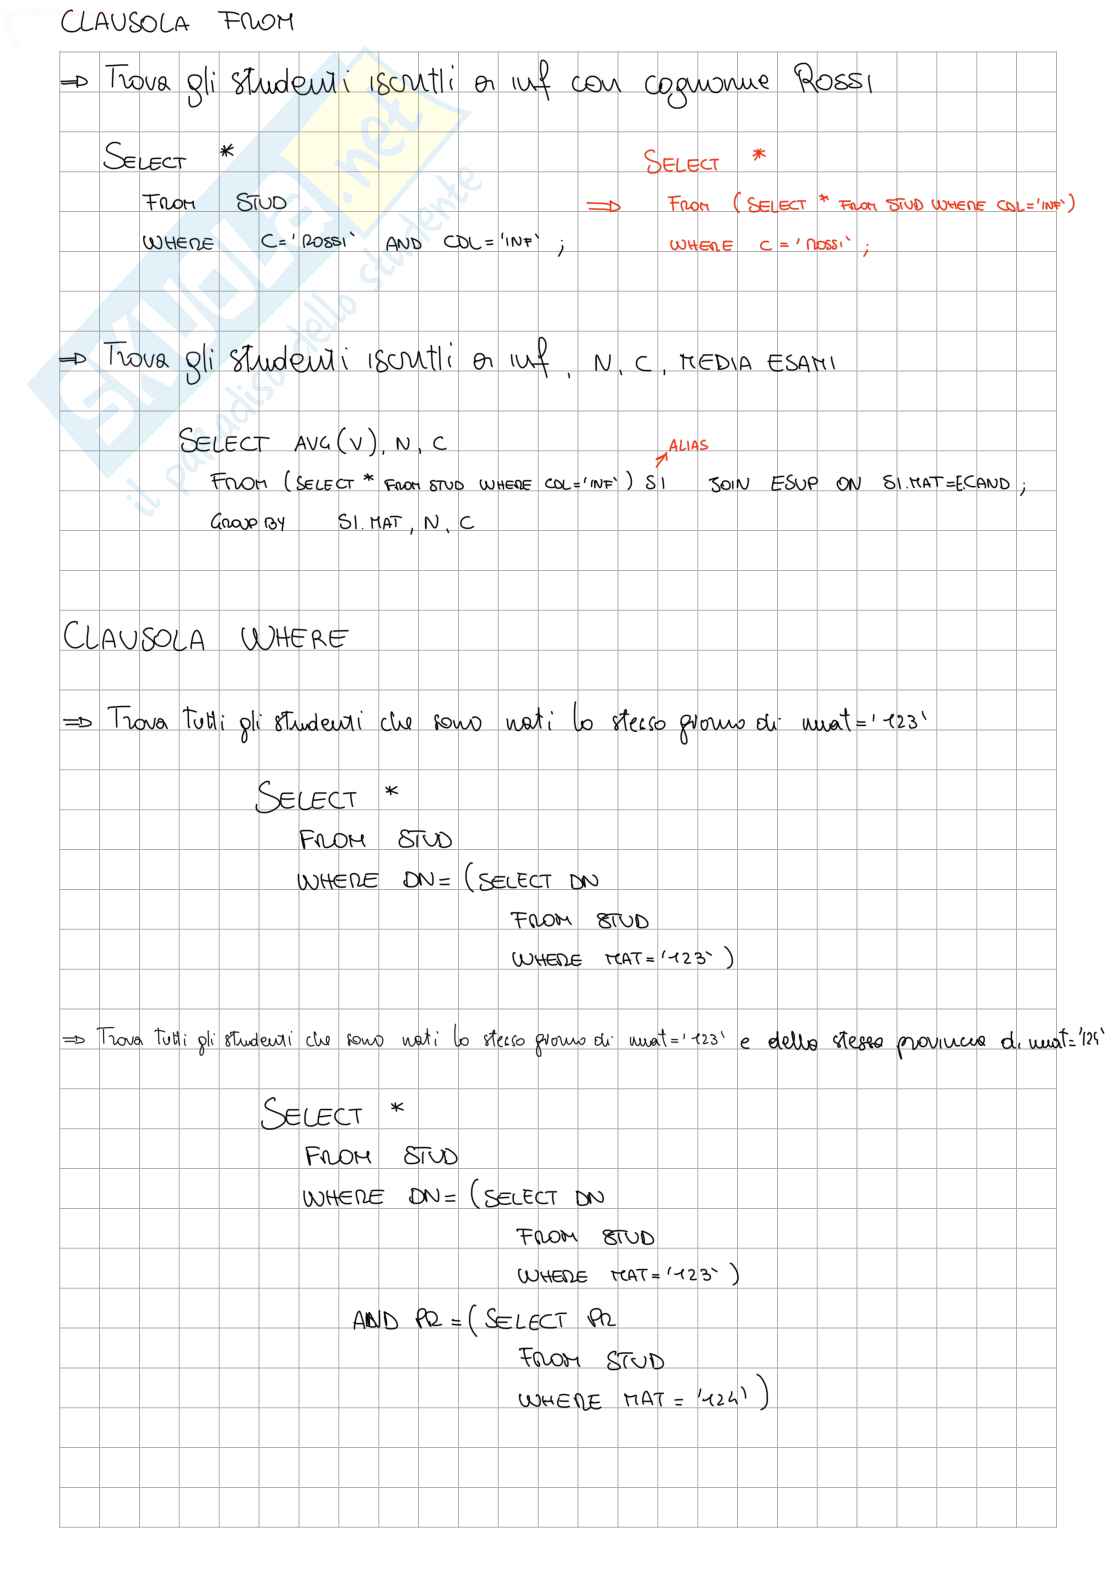 CLAUSOLA FROM
⇒ Trova gli studenti iscritti a inf con cognome ROSSI
SELECT *
FROM STUD
WHERE C='ROSSI' AND CDL='INF' ;
⇒
SELECT *
FROM (SELECT * FROM STUD WHERE CDL='INF')
WHERE C='ROSSI' ;
⇒ Trova gli studenti iscritti a inf, N, C, MEDIA ESAMI
SELECT AVG(V), N, C
ALIAS
FROM (SELECT * FROM STUD WHERE CDL='INF') SI JOIN ESUP ON SI.MAT=ECAND ;
GROUP BY SI.MAT, N, C
CLAUSOLA WHERE
⇒ Trova tutti gli studenti che sono nati lo stesso giorno di mat='123'
SELECT *
FROM STUD
WHERE DN=(SELECT DN
FROM STUD
WHERE MAT='123')
⇒ Trova tutti gli studenti che sono nati lo stesso giorno di mat='123' e della stessa provincia di mat='124'
SELECT *
FROM STUD
WHERE DN=(SELECT DN
FROM STUD
WHERE MAT='123')
AND PR=(SELECT PR
FROM STUD
WHERE MAT='124')
SKUOLA.net
il paradiso dello studente